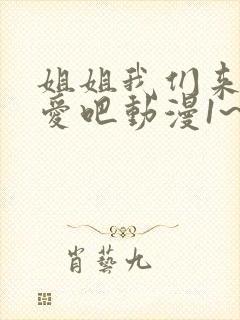 姐姐我们来
爱吧動漫1~
肖藝九